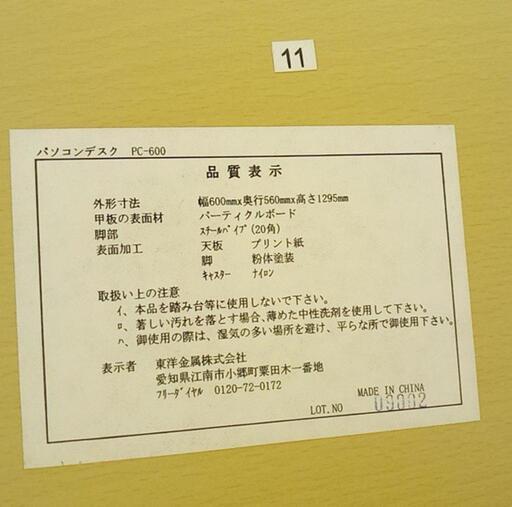 11
パソコンデスク PC-600
品質表示
外形寸法 幅600mmx奥行560mmx高さ1295mm
甲板の表面材 パーティクルボード
脚部 ｽﾁｰﾙﾊﾟｲﾌﾟ(20角)
表面加工 天板 プリント紙
脚 粉体塗装
ｷｬｽﾀｰ ﾅｲﾛﾝ
取扱い上の注意
ｲ、本品を踏み台等に使用しないで下さい。
ﾛ、著しい汚れを落とす場合、薄めた中性洗剤を使用して下さい。
ﾊ、御使用の際は、湿気の多い場所を避け、平らな所で御使用下さい。
表示者 東洋金属株式会社
愛知県江南市小郷町栗田木一番地
ﾌﾘｰﾀﾞｲﾔﾙ 0120-72-0172
MADE IN CHINA
LOT.NO 09002